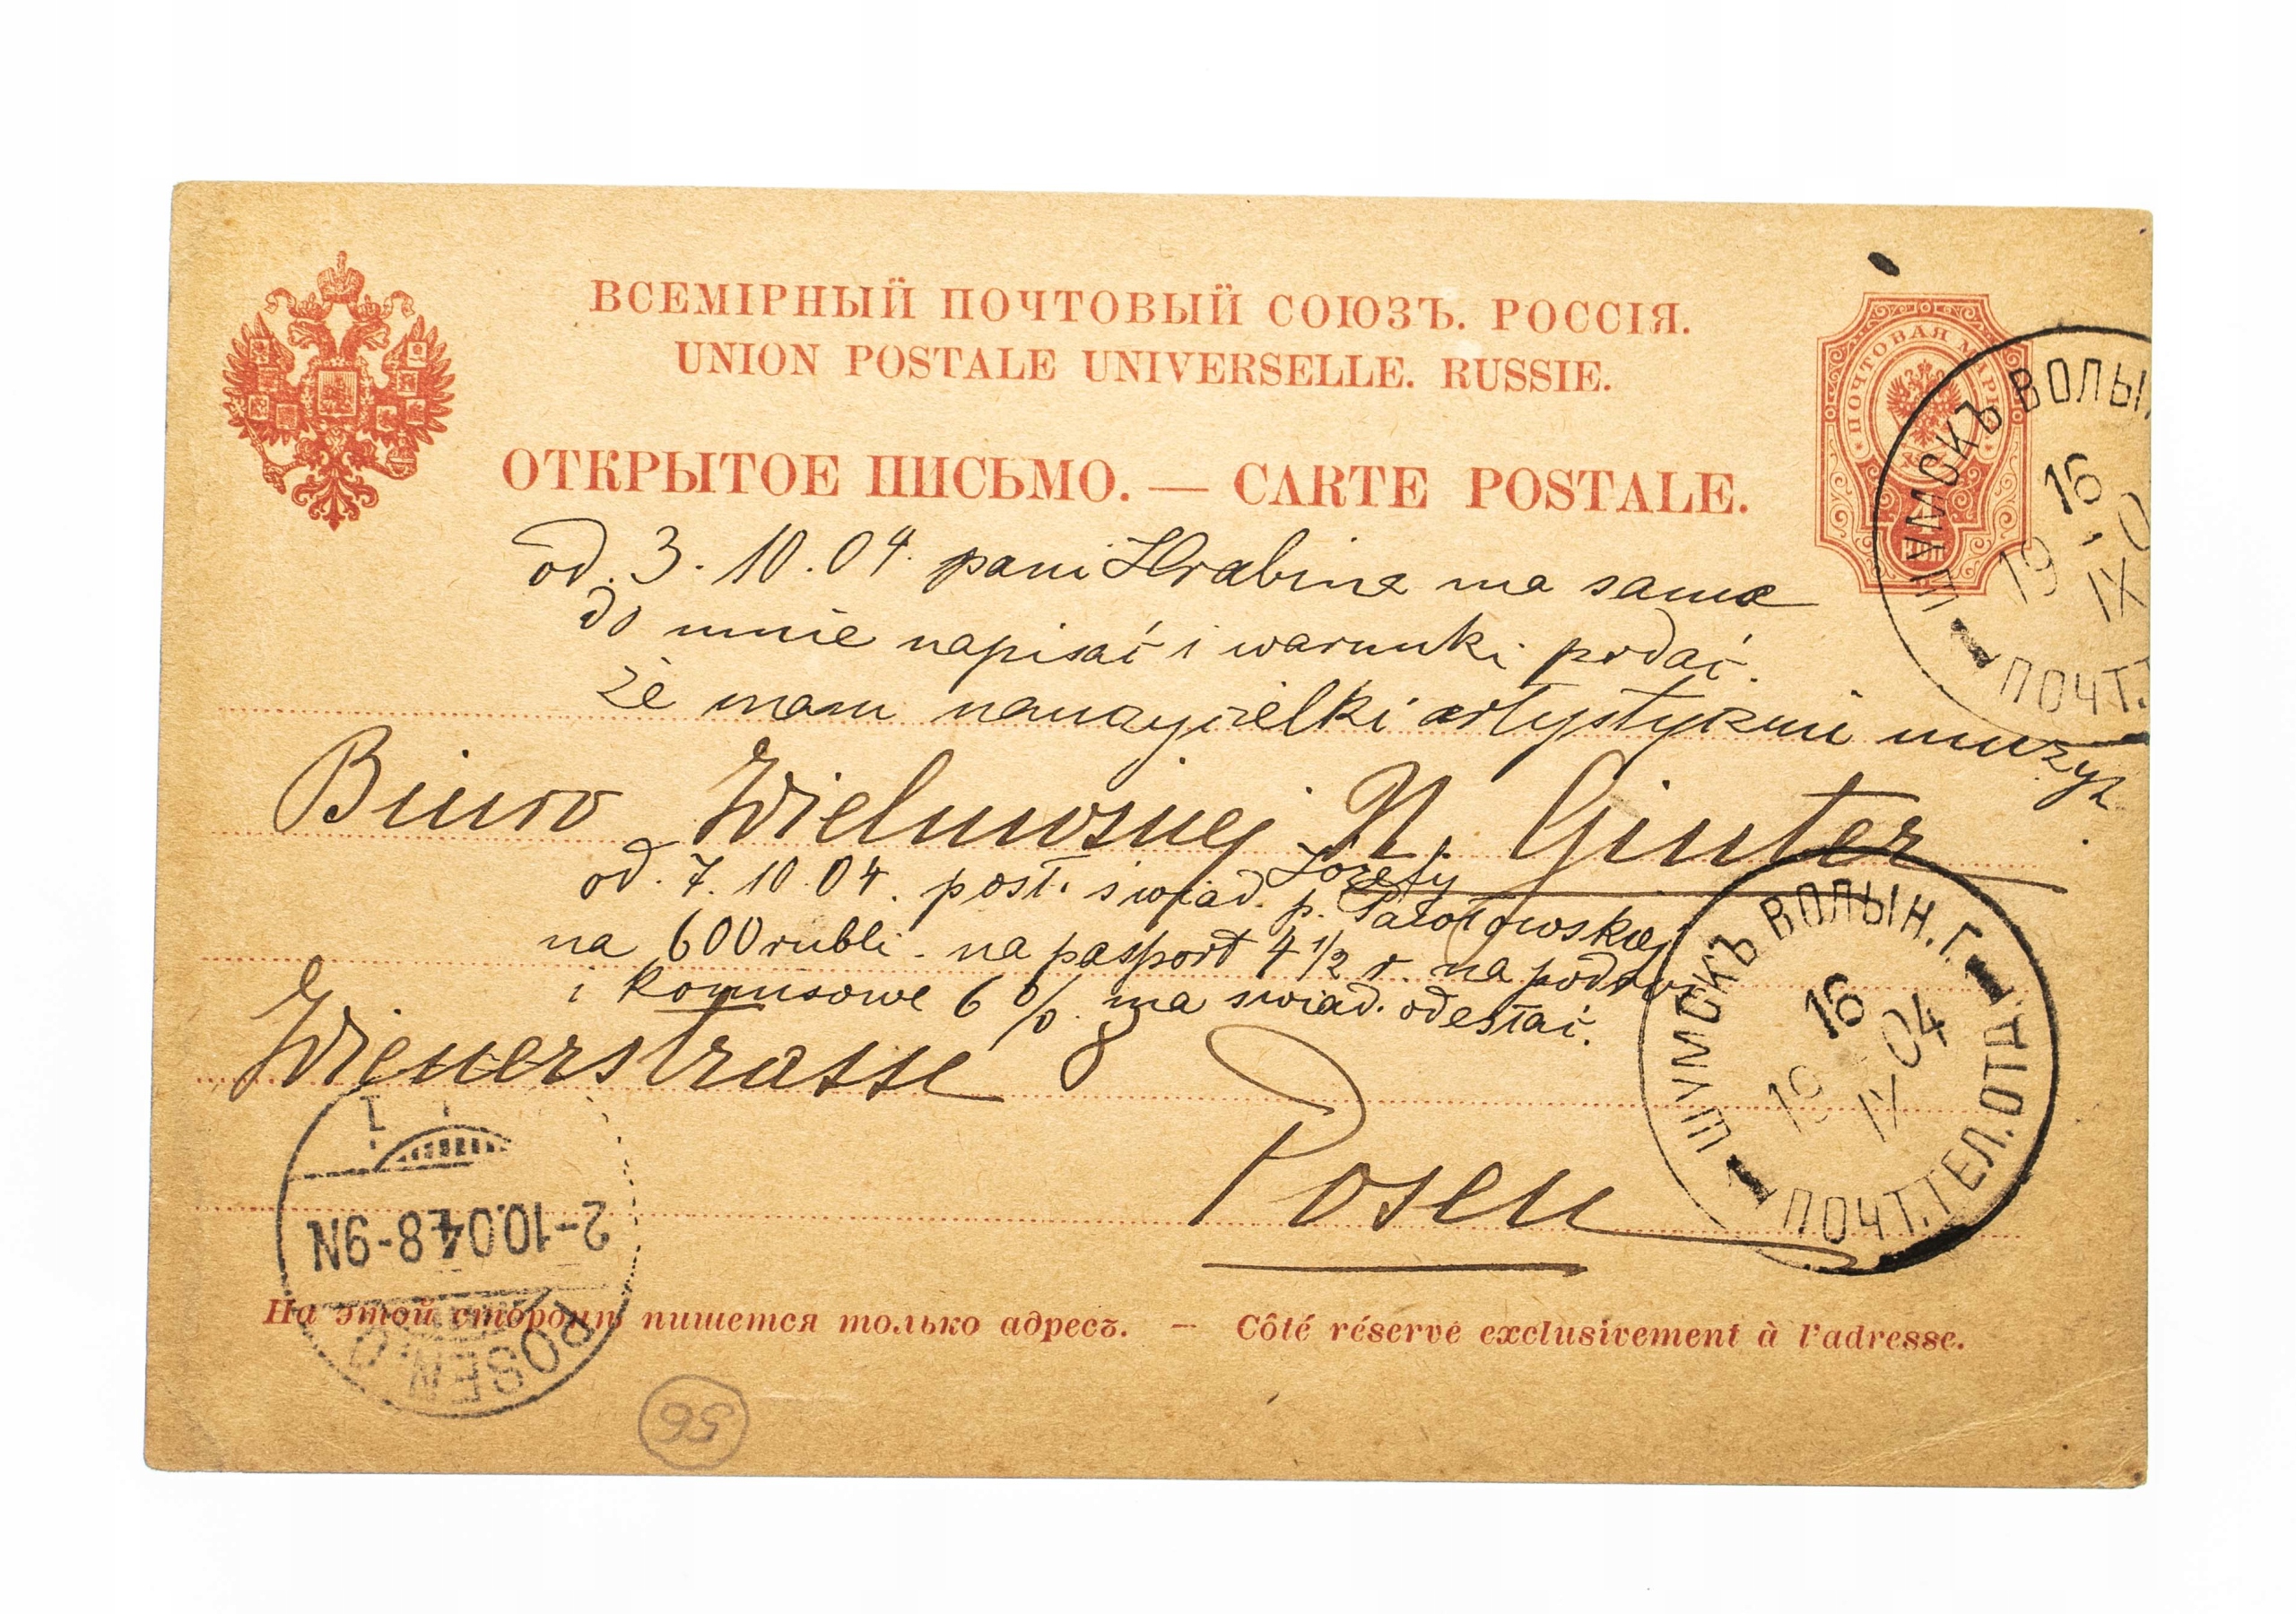 ВСЕМІРНЫЙ ПОЧТОВЫЙ СОЮЗЪ. РОССІЯ.
UNION POSTALE UNIVERSELLE. RUSSIE.
ОТКРЫТОЕ ПИСЬМО. — CARTE POSTALE.
ПОЧТОВАЯ МАРКА
ШУМСКЪ ВОЛЫ
16
19 0
IX
1 ПОЧТ.
od. 3. 10. 04. pani Hrabina ma sama
do mnie napisać i warunki podać.
że mam nauczycielki artystycznie muzyk
Biuro Wielmożnej N. Ginter
od. 7. 10. 04. post. świad. p. Józefy
na 600 rubli. na pasport 4 1/2 r. na podróż
i komisowe 6 % ma świad. odesłać.
Wienerstrasse 8
Posen
ШУМСКЪ ВОЛЫН. Г.
16
19 04
IX
1 ПОЧТ. ТЕЛ. ОТД. 1
POSEN. O
2-10.04.8-9N
1
На этой сторонѣ пишется только адресъ. — Côté réservé exclusivement à l'adresse.
56